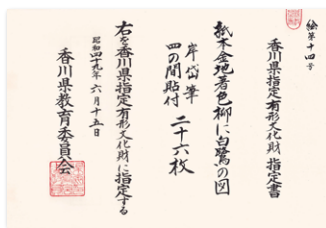 絵第十四号
香川県指定有形文化財指定書
紙本金地著色柳に白鷺の図
岸岱筆
四の間貼付 二十六枚
右を香川県指定有形文化財に指定する
昭和四十九年六月十五日
香川県教育委員会